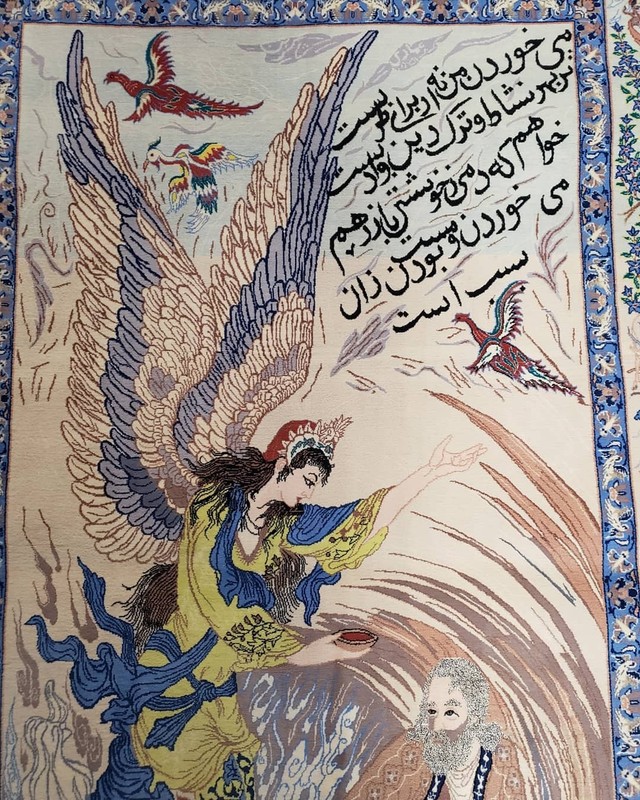 می خوردن من نه از برای طربست
نز بهر نشاط و ترک دین و ادبست
خواهم که دمی ز خویشتن باز رهم
می خوردن و مست بودن زان
سبب است